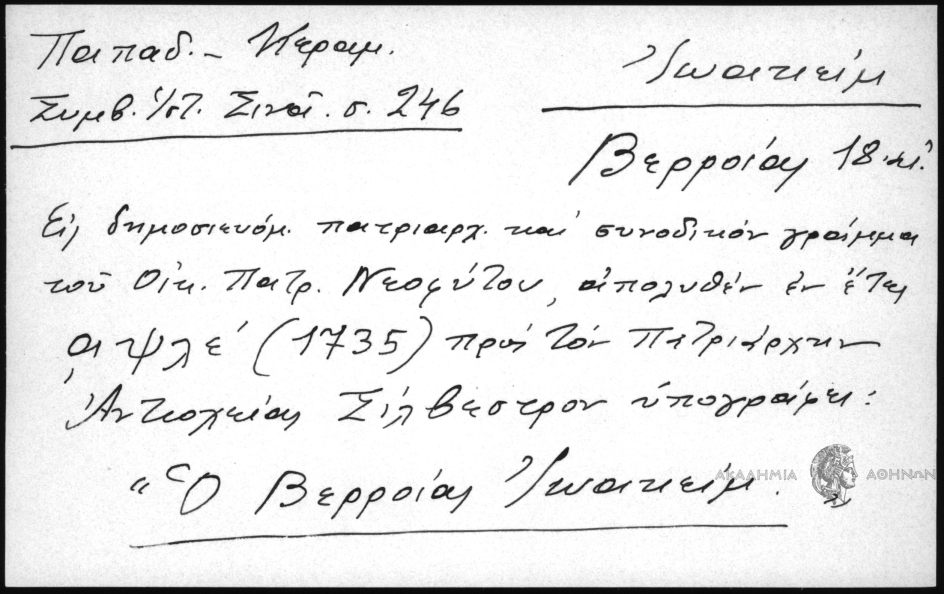 Παπαδ. – Κεραμ.
Συμβ. Ἱστ. Σινᾶ. σ. 246
Ἰωακείμ
Βερροίας 18 αἰ.
Εἰς δημοσιευόμ. πατριαρχ. καί συνοδικόν γράμμα
τοῦ Οἰκ. Πατρ. Νεοφύτου, ἀπολυθέν ἐν ἔτει
͵αψλέ (1735) πρός τόν Πατριάρχην
Ἀντιοχείας Σίλβεστρον ὑπογράφει:
“Ὁ Βερροίας Ἰωακείμ.
ΑΚΑΔΗΜΙΑ ΑΘΗΝΩΝ